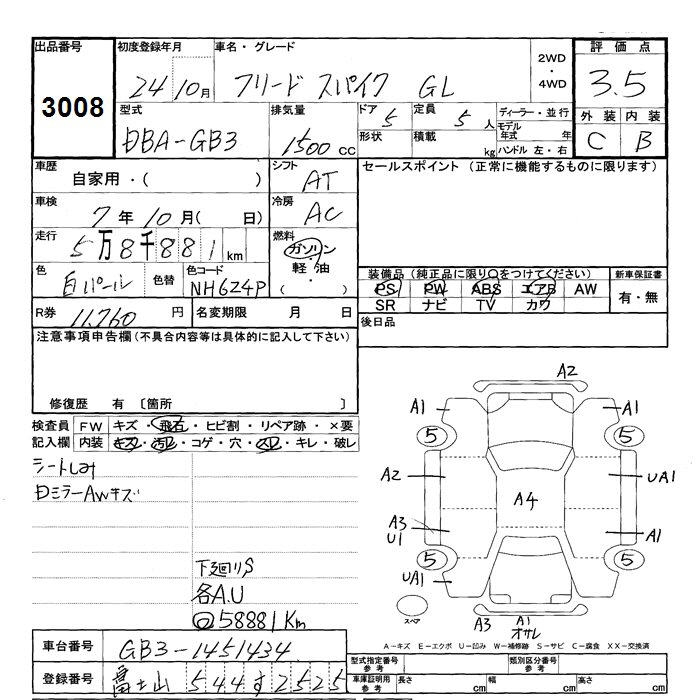 出品番号 初度登録年月 車名・グレード 2WD・4WD 評価点
3008 24 10月 フリード スパイク GL 3.5
型式 排気量 ドア 5 定員 5人 ディーラー・並行 外装 内装
DBA-GB3 1500cc 形状 積載 kg モデル年式 年 ハンドル 左・右 C B
車歴 シフト セールスポイント (正常に機能するものに限ります)
自家用・( ) AT
車検 冷房
7年10月( 日) AC
走行 5万8千881km 燃料
ガソリン
軽・油
( ・ )
色 白パール 色替 色コード NH624P
装備品 (純正品に限り○をつけてください) 新車保証書
PS PW ABS エアB AW 有・無
SR ナビ TV カワ
R券 11,760円 名変期限 月 日 後日品
注意事項申告欄(不具合内容等は具体的に記入して下さい)
修復歴 有 〔箇所 〕
検査員 FW キズ・飛石・ヒビ割・リペア跡・×要
記入欄 内装 キズ・汚レ・コゲ・穴・スレ・キレ・破レ
シートしみ
DミラーAwキズ
下廻りS
各A.U
58881Km
A2
A1 A1
5 5
A2 UA1
A4
A3 A1
U1
5 5
UA1
スペア
A3 A1
オサレ
A-キズ E-エクボ U-凹み W-補修跡 S-サビ C-腐食 XX-交換済
車台番号 GB3-1451434
登録番号 富士山 544 す 2525
型式指定番号 参考 類別区分番号 参考
車庫証明用 参考 長さ cm 幅 cm 高さ cm